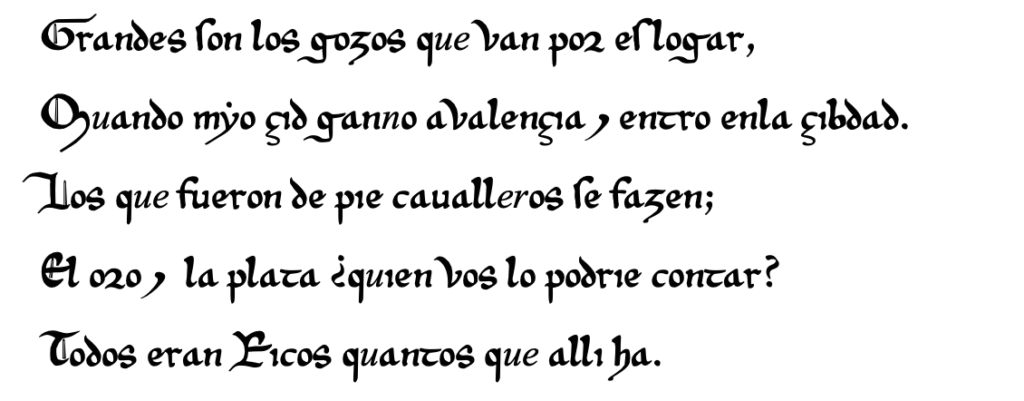 Grandes ſon los gozos que van por eſ logar,
Quando myo çid ganno a Valençia ⁊ entro enla çibdad.
Los que fueron de pie caualleros ſe fazen;
El oro ⁊ la plata ¿quien vos lo podrie contar?
Todos eran Ricos quantos que alli ha.